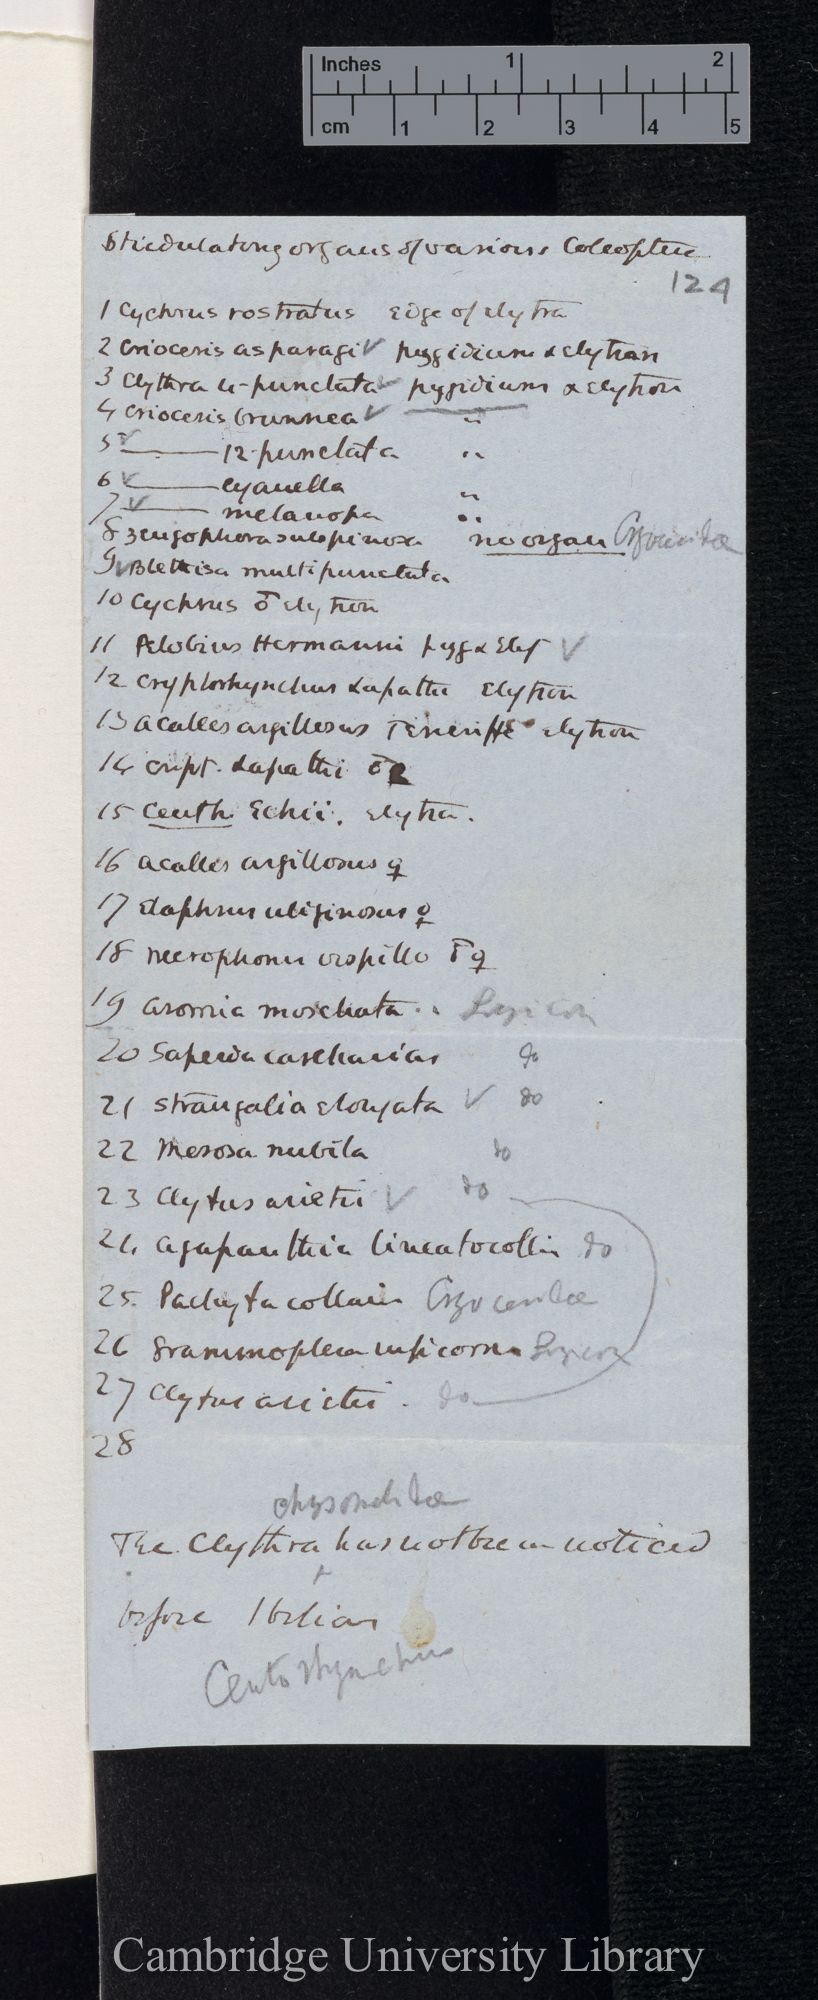 Inches 1 2
cm 1 2 3 4 5
Stridulating organs of various Coleoptera
124
1 Cychrus rostratus Edge of elytra
2 Crioceris asparagi ✓ pygidium & elytran
3 Clythra 4-punctata ✓ pygidium & elytron
4 Crioceris brunnea ✓ "
5 ✓ —— 12-punctata "
6 ✓ —— cyanella "
7 ✓ —— melanopa "
8 Zeugophora subspinosa no organ
9 ✓ Blethisa multipunctata
10 Cychrus ♂ elytron
11 Pelobius Hermanni pyg & Elyt ✓
12 Cryptorhynchus Lapathi Elytron
13 acalles argillosus Teneriffe elytron
14 cript. Lapathi ♂
15 Ceuth. Echii. elytra.
16 acalles argillosus ♀
17 Elaphrus uliginosus ♀
18 Necrophorus vespillo ♂ ♀
19 aromia moschata . . Longicorn
20 Saperda carcharias do
21 Strangalia elongata ✓ do
22 Mesosa nubila do
23 Clytus arietis ✓ do
24 agapanthia lineatocollis do
25 Pachyta collaris
26 Grammoptera ruficornis Longicorn
27 Clytus arietis . do
28
chrysomelidae
The Clythra has not been noticed
before I believe
Ceutorhynchus
Cambridge University Library